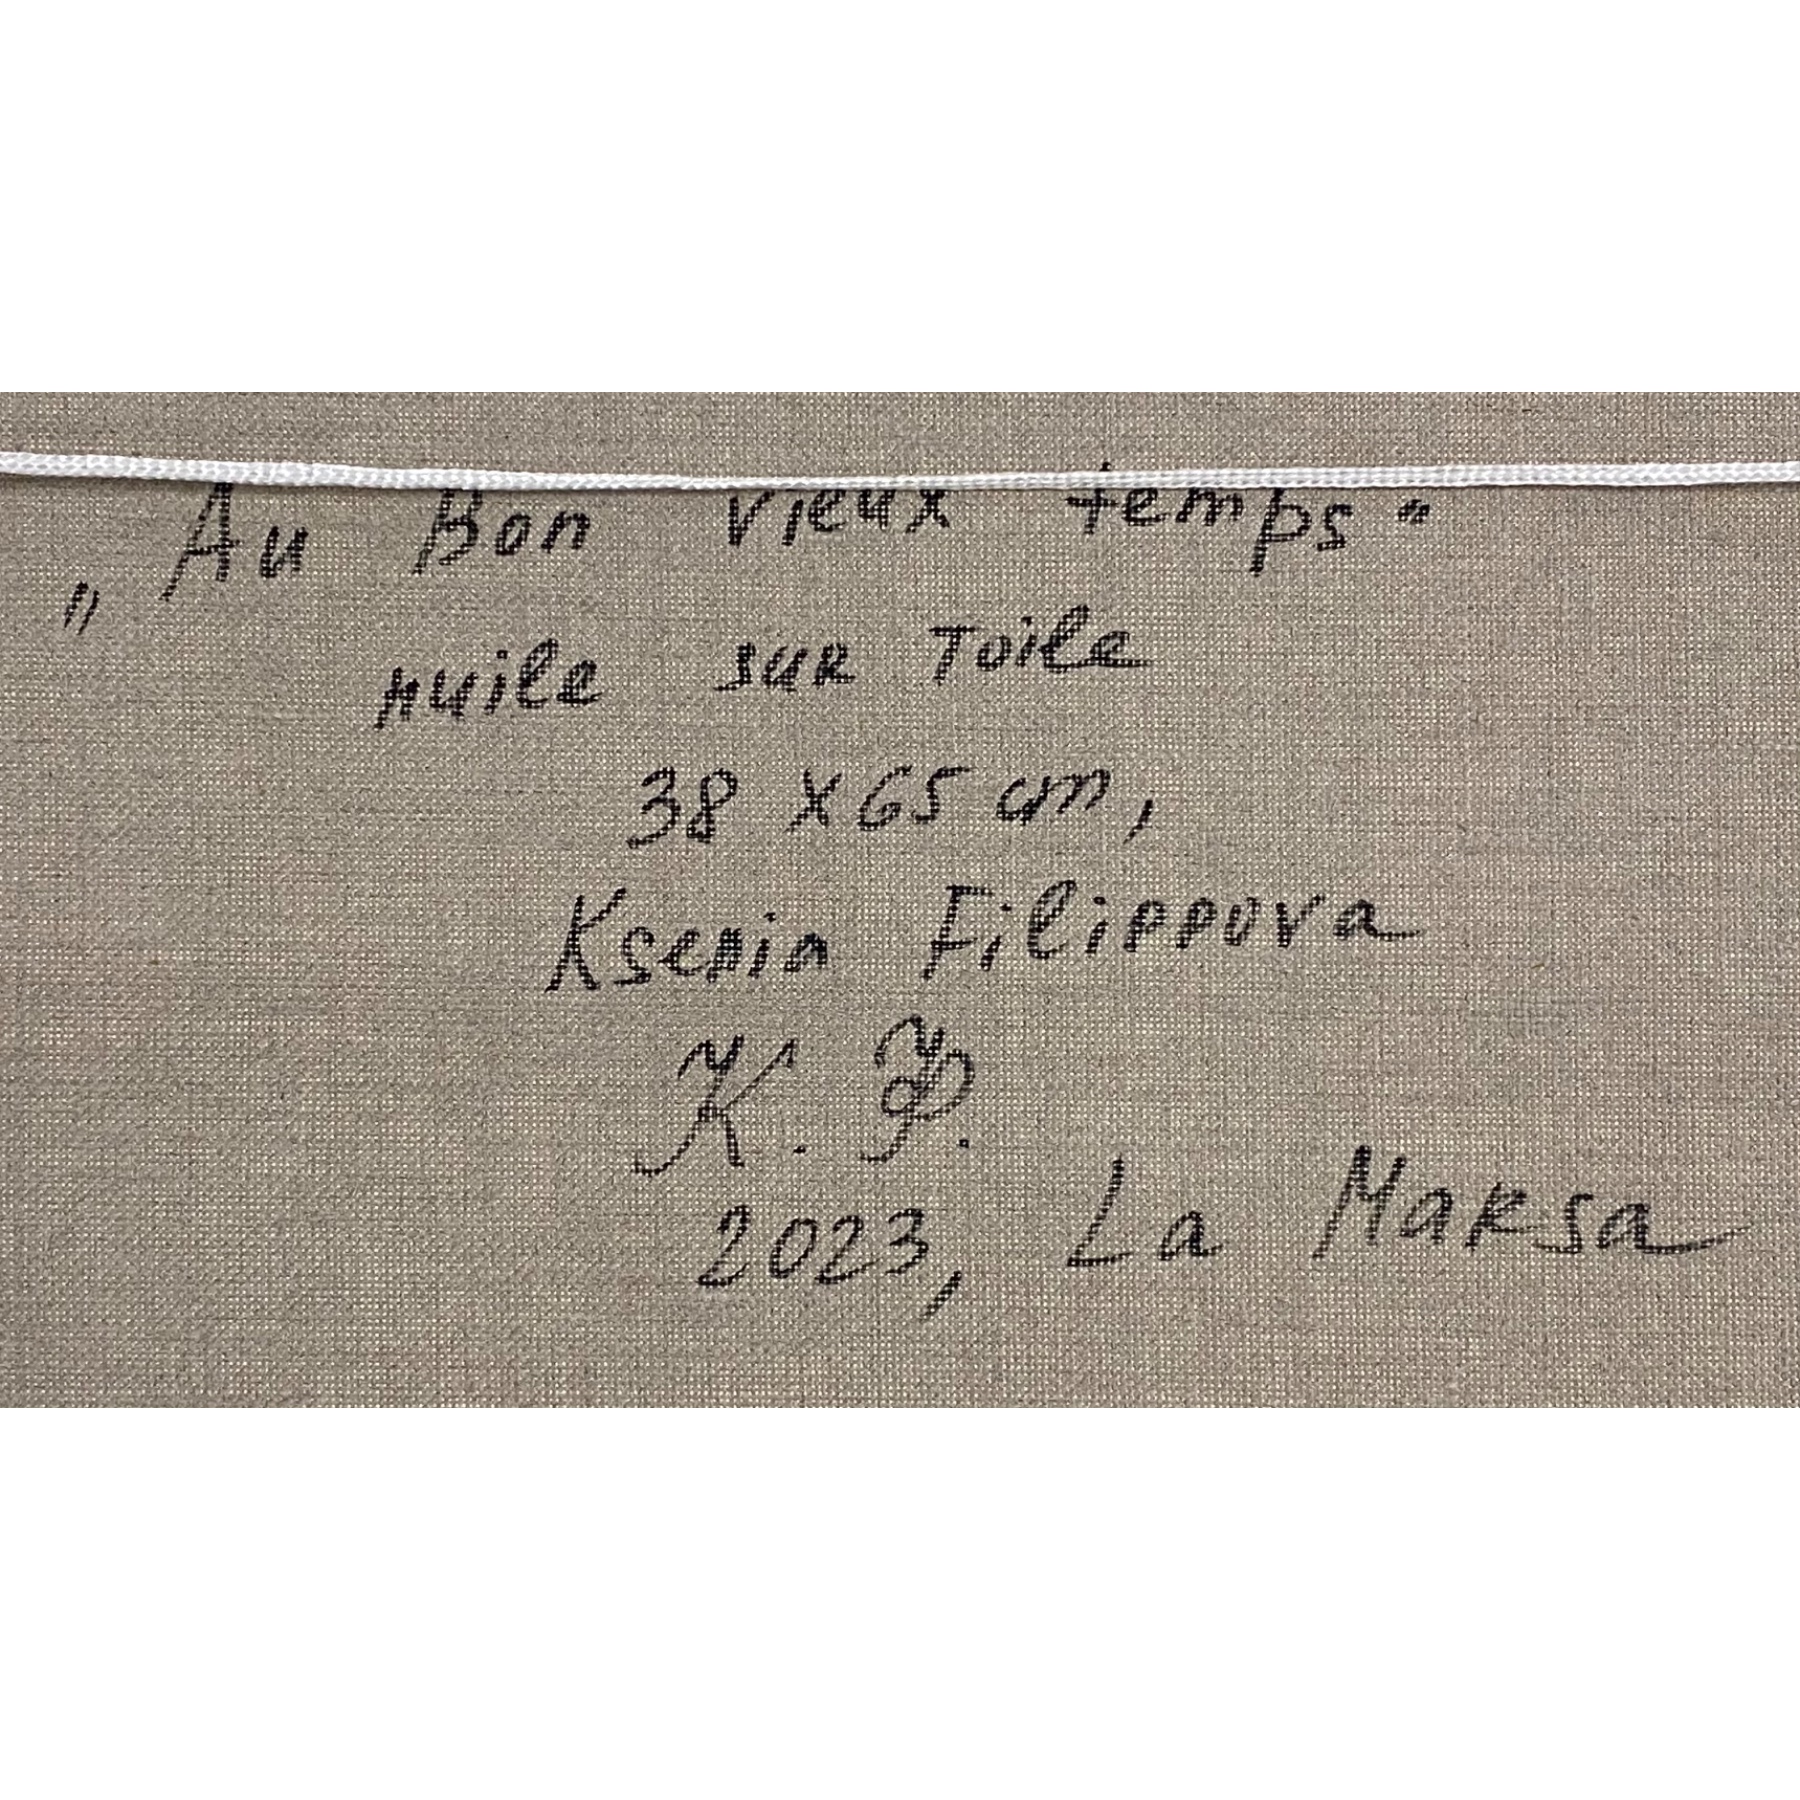 „Au Bon vieux temps"
Huile sur Toile
38 x 65 cm,
Ksenia Filippova
К. Ф.
2023, La Marsa